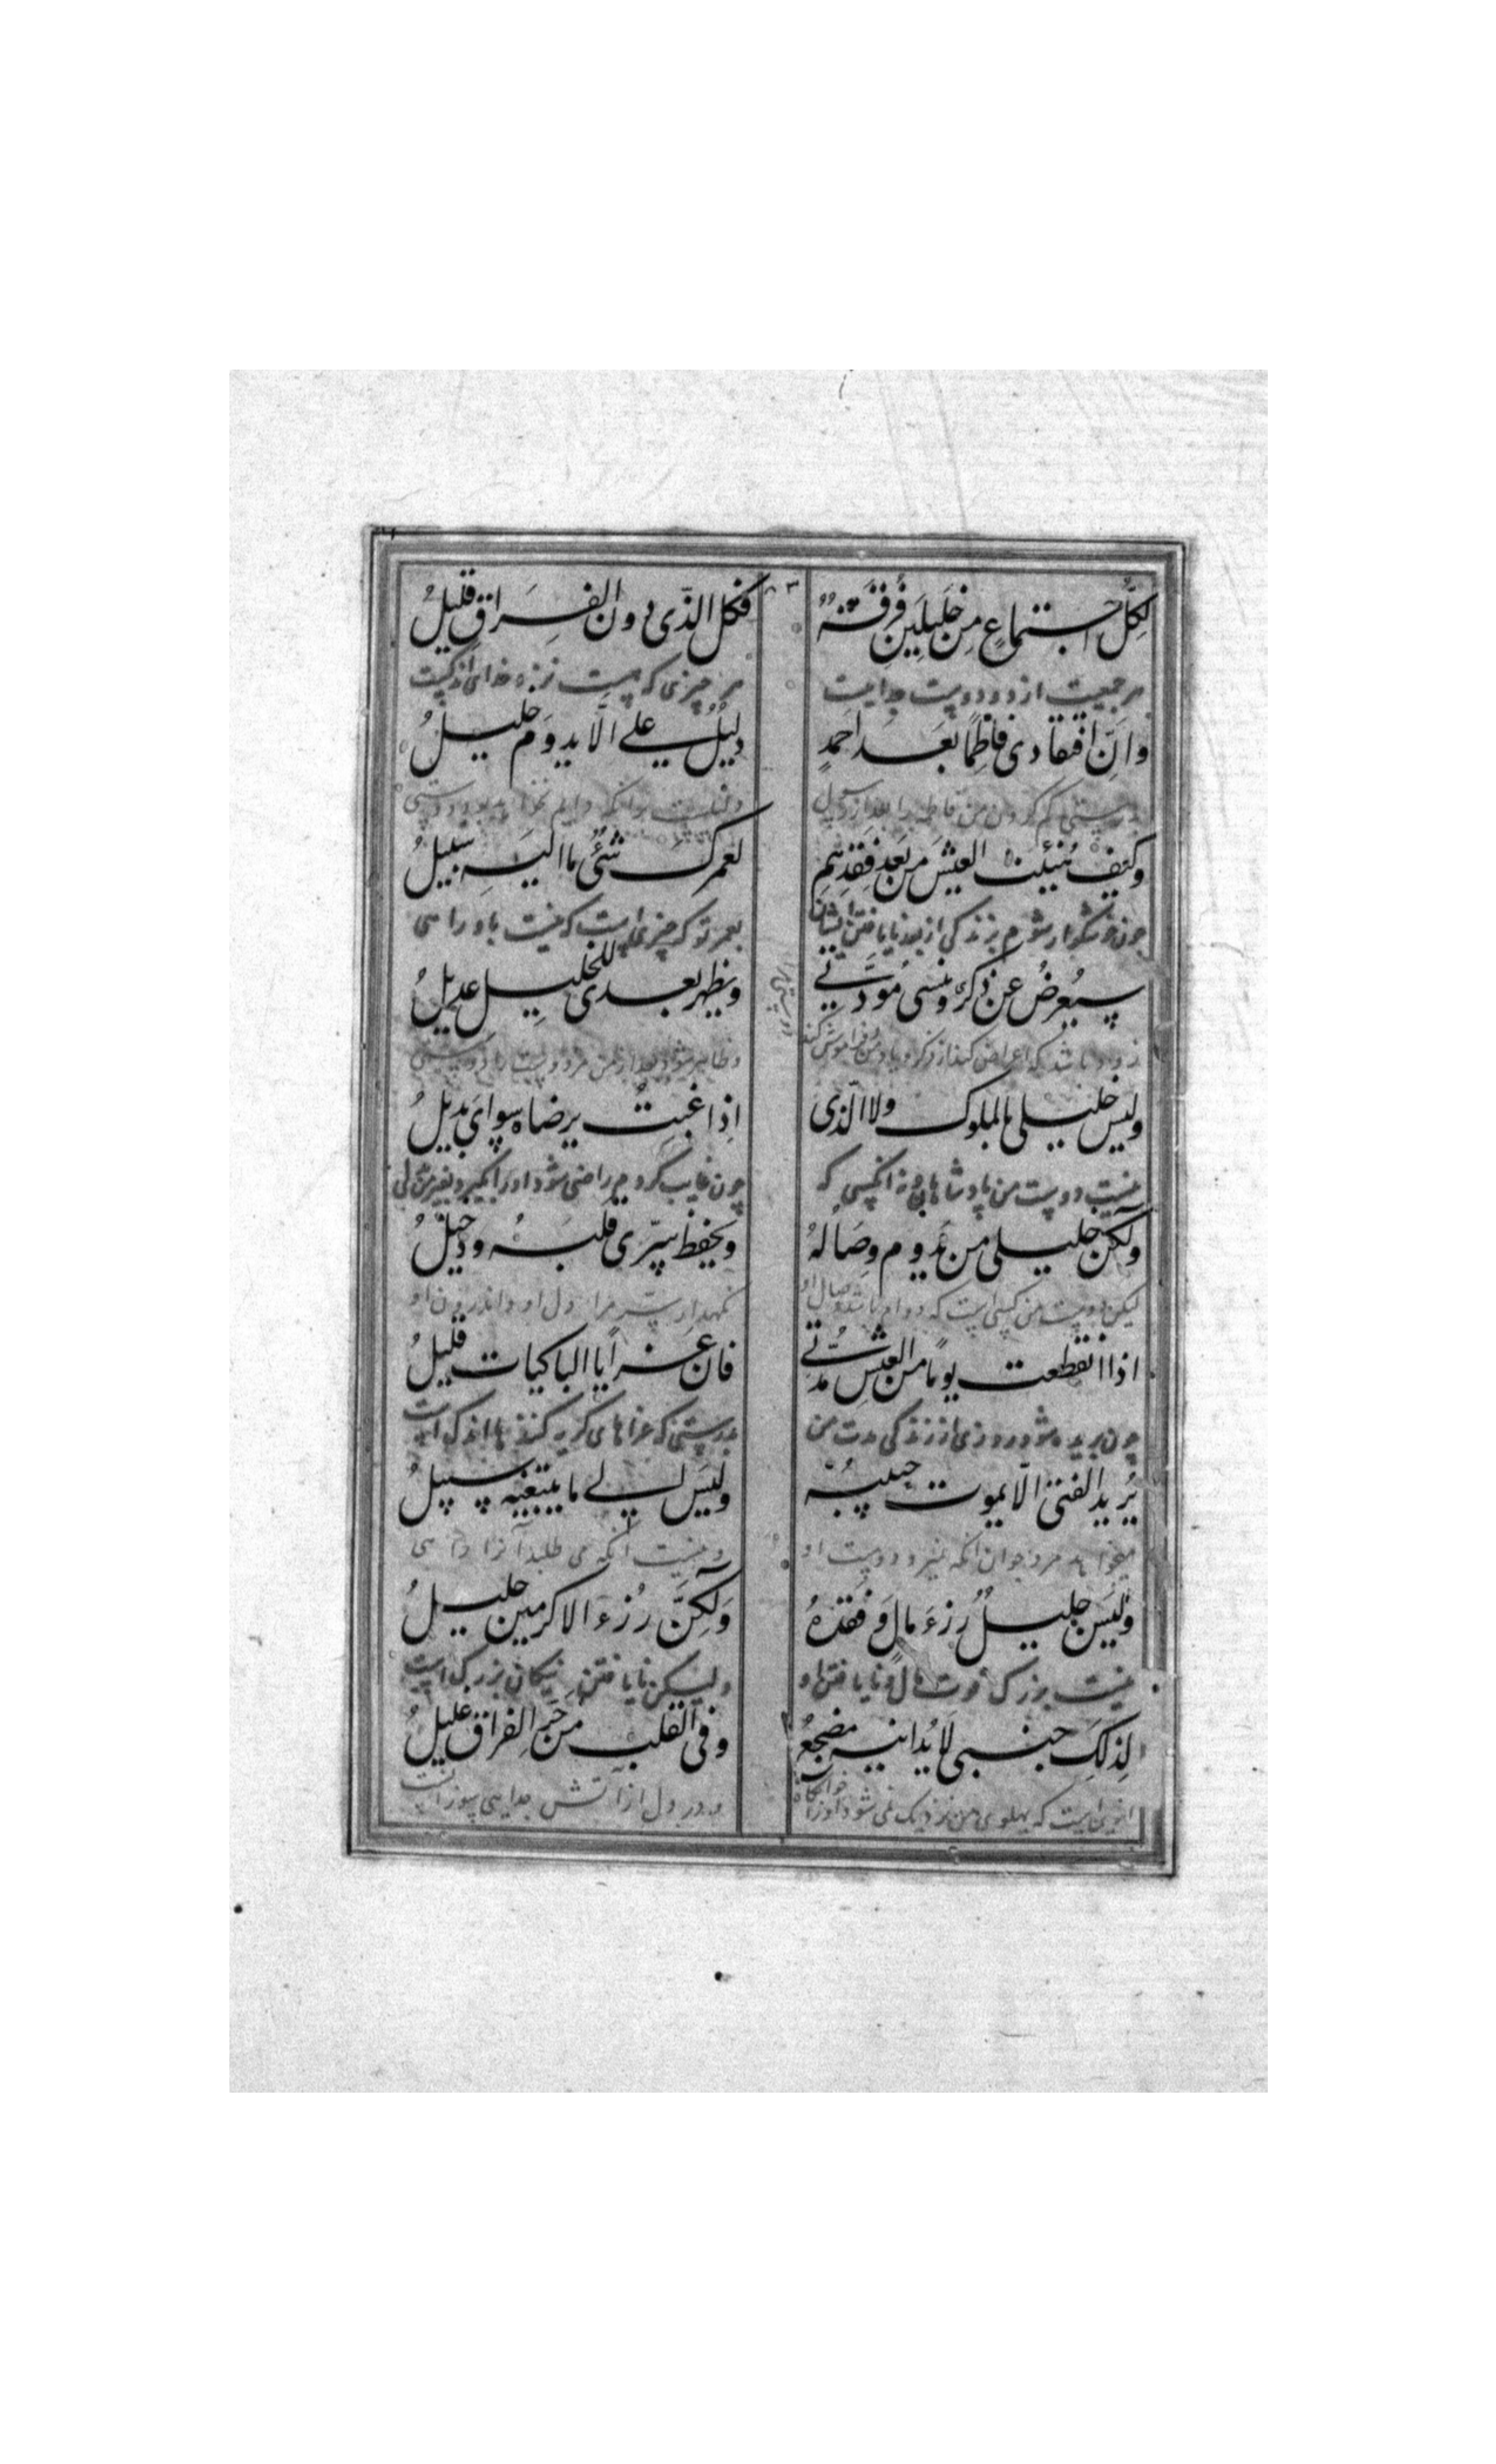 لِكُلِّ اجْتِماعٍ مِن خَلِيلَينِ فُرقَةٌ
فكل الّذى دون الفِراقِ قليلُ
هر جمعیت از دو دوست جداییست
هر چیزی که هست نزد جدائی اندکیست
وانّ افتقادى فاطِمًا بعدَ احمدٍ
دليلٌ على الّا يدومَ خليلُ
بدرستی گم کردن من فاطمه را بعد از رسول
دلیلست برانکه دایم
وكيف هنيئت العيشَ من بَعدِ فَقدِهِم
لعمركَ شئٌ ما اليهِ سبيلُ
چون خوشگوار شوم بزندگی از بعد نایافتن ایشان
بعمر تو که چیزی است که نیست باو راهی
سيُعرضُ عن ذكرى وينسى مَودّتي
ويظهر بعدى للخليلِ عديلُ
زود باشد که اعراض کند از ذکر و یاد من فراموش کند
وظاهر شود بعد از من مر دوست را
دوستی مرا
وليس خليلى بالملوك ولا الّذى
اِذا غبتُ يرضاه سواىَ بديلُ
نیست دوست من پادشاهان و نه انکسی که
چون غایب کردم راضی شود او را
ولكن خليلى من يَدوم وِصَالُهُ
ويحفظ سِرّى قلبَهُ ودخيلُ
لیکن دوست من کسی است که دوام باشد وصال او
نکهدارد سر مرا دل او و اندرون او
اذا انقطعت يومًا من العيشِ مُدّتي
فان عَزايا الباكيات قليلُ
چون بریده شود روزی از زندگی مدت من
بدرستی که عزاهای گریه کننده ها اندک است
يُريد الفتىٰ الّا يموت حبيبُهُ
وليسَ الي ما يبتغيه سبيلُ
میخواهد مرد جوان انکه نمیرد دوست او
و نیست انکه می طلبد آنرا راهی
وليسَ جليلٌ رزءَ مالٍ وفقدُهُ
ولكنَّ رُزءَ الاكرمين جليلُ
نیست بزرگ فوت مال و نایافتن او
ولیکن نایافتن نیکان بزرگ است
لِذلكَ جنبى لا يُدانيهِ مضجعُ
وفى القلب من حَرِّ الفراق عليلُ
ازبرای انست که پهلوی من نزدیک نمی شود او را خوابگاه
و در دل از اتش جدایی